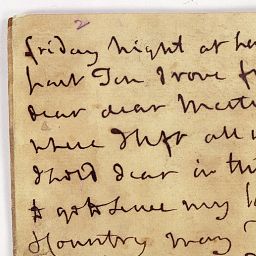 2
friday night at ha
hart Ten I rove f
dear dear
where I left all
I hold dear in thi
to go to serve my
Country may